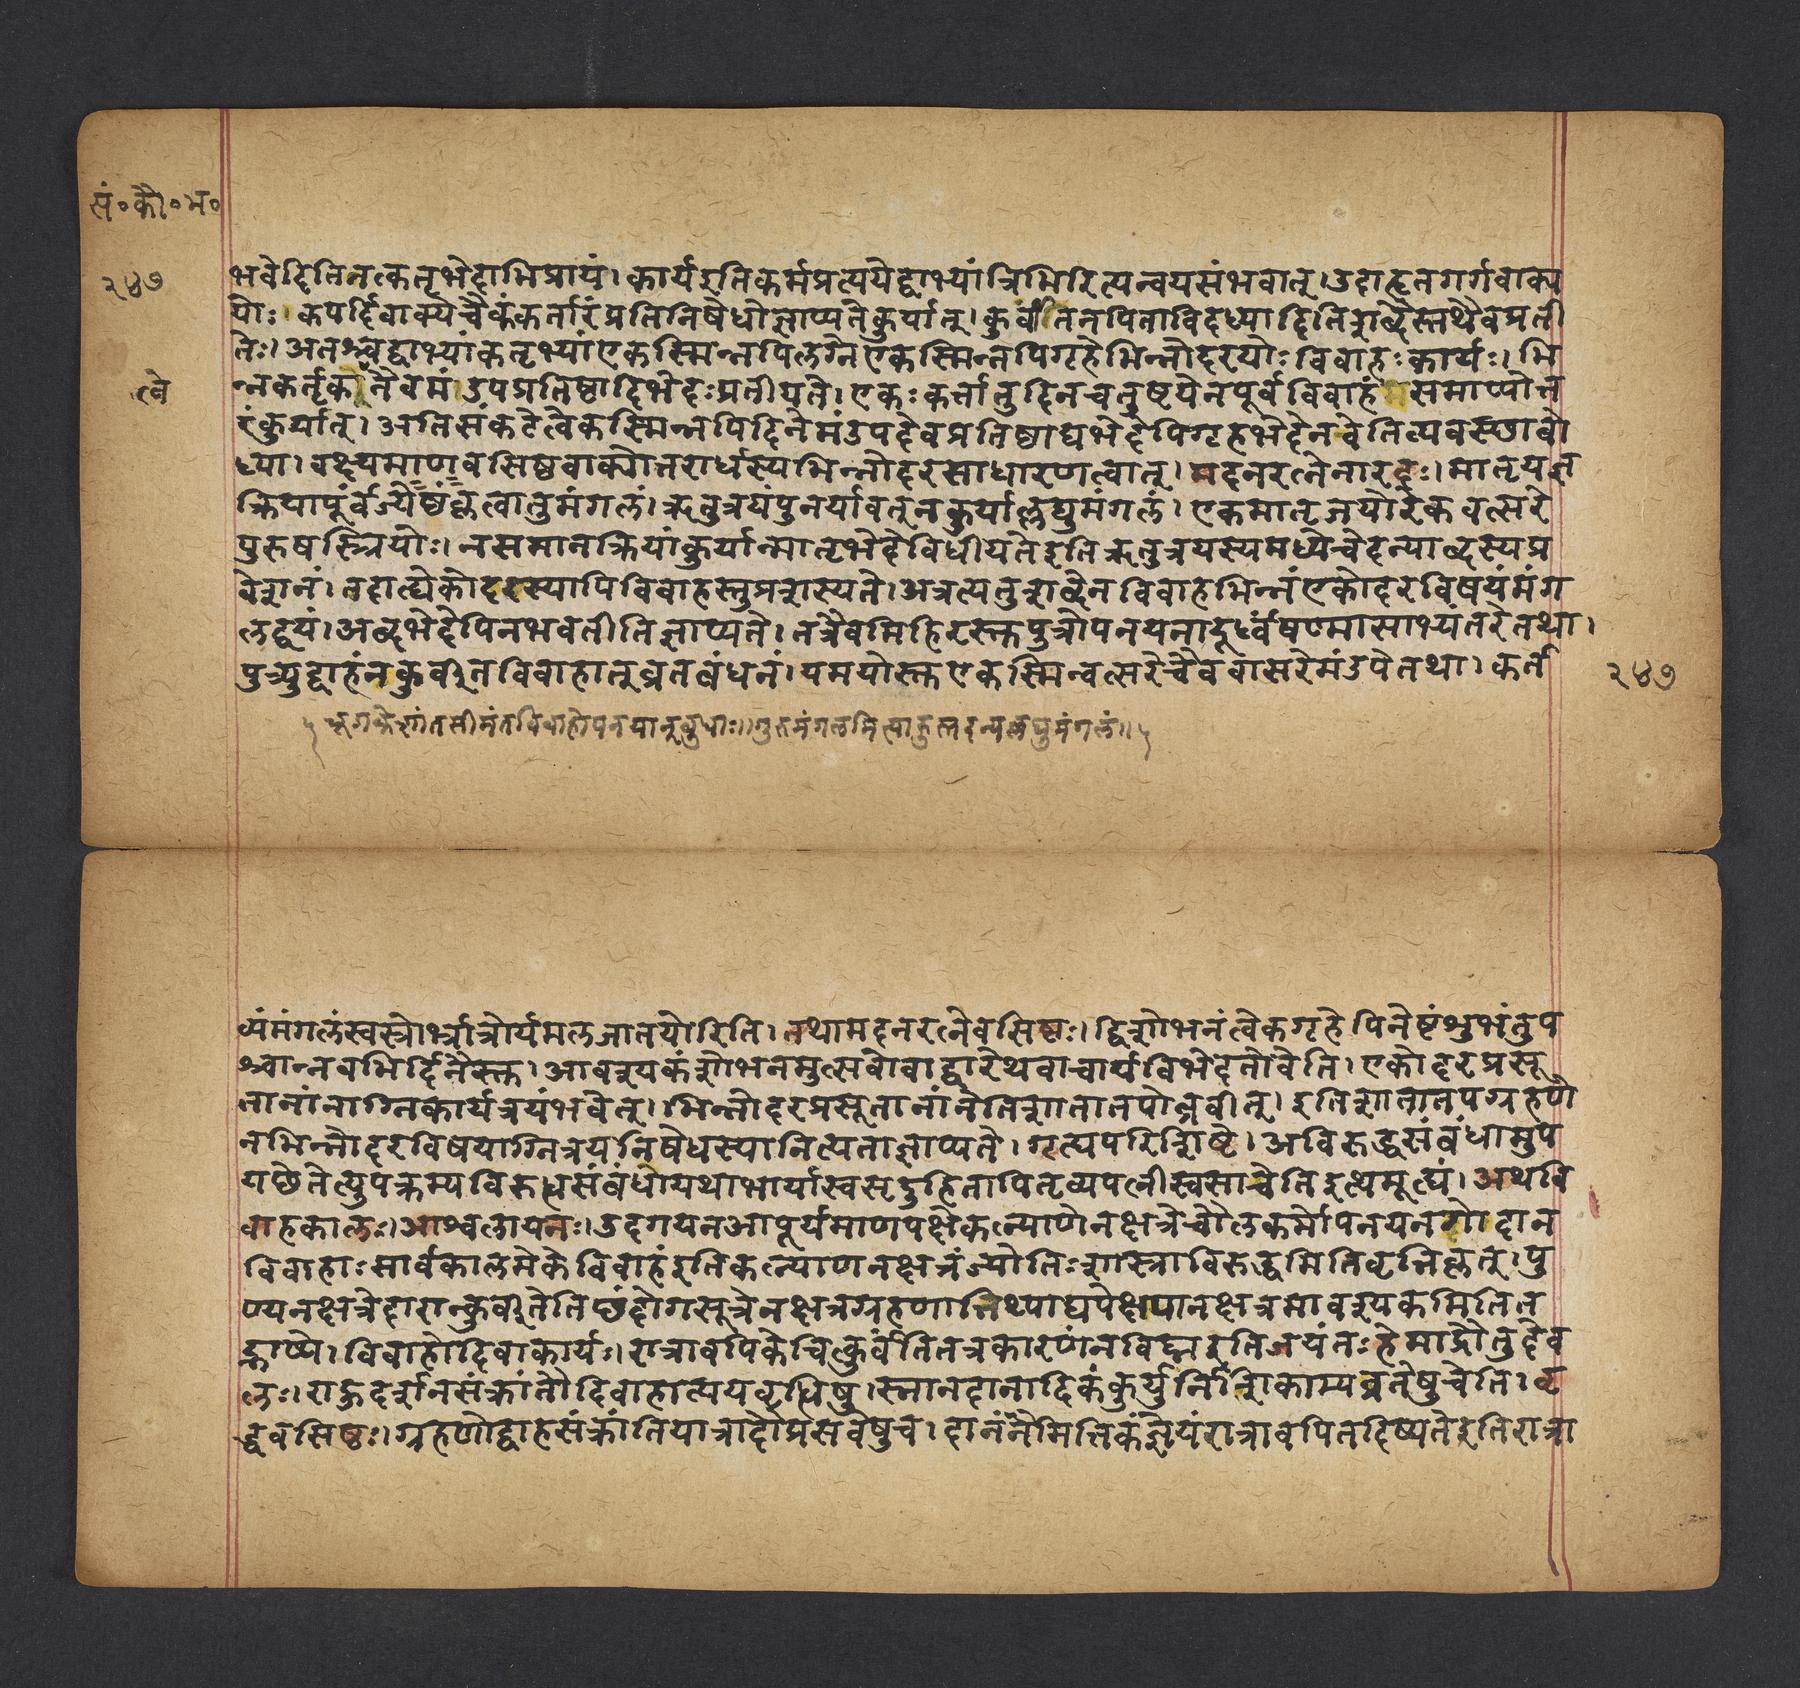 सं॰कौ॰भ॰
२४७
भवेदितितत्कतृभेदाभिप्रायं। कार्यइतिकर्मप्रत्ययेद्वाभ्यांत्रिभिरित्यन्वयसंभवात्। उदाहृतगर्गवाक्य
योः। कपर्दिवाक्येचैकंकर्तारंप्रतिनिषेधोज्ञाप्यतेकुर्यात्। कुर्वीतितपिताविदध्यादितिशब्दैस्तथैवप्रती
तेः। अतश्चद्वाभ्यांकतृभ्यांएकस्मिन्नपिलग्नेएकस्मिन्नपिगृहेभिन्नोदरयोःविवाहःकार्यः। भि
त्वे
न्नकर्तृकनैवमंडपप्रतिष्ठादिभेदःप्रतीयते। एकःकर्त्तातुदिनचतुष्टयेनपूर्वविवाहंसमाप्योत्त
रंकुर्यात्। अतिसंकटेत्वेकस्मिन्नपिदिनेमंडपदेवप्रतिष्ठाद्यभेदेपिगृहभेदेनवेतिव्यवस्छाबो
ध्या। वक्ष्यमाणवसिष्ठवाक्योत्तरार्धस्यभिन्नोदरसाधारणत्वात्। मदनरत्नेनारदः। मातृयज्ञ
क्रियापूर्वंज्येष्ठंकृत्वातुमंगलं। ऋतुत्रयंपुनर्यावत्नकुर्याल्लघुमंगलं। एकमातृजयोरेकवत्सरे
पुरुषस्त्रियोः। नसमानक्रियांकुर्यान्मातृभेदेविधीयतेइतिऋतुत्रयस्यमध्येचेदन्याब्दस्यप्र
वेशनं। तदाह्येकोदरस्यापिविवाहस्तुप्रशस्यते। अत्रत्यतुशब्देनविवाहभिन्नंएकोदरविषयंमंग
लद्वयं। अब्दभेदेपिनभवतीतिज्ञाप्यते। तत्रैवमिहिरस्क्तपुत्रोपनयनादूर्ध्वंषण्मासाभ्यंतरेतथा।
पुत्र्युद्वाहंनकुर्वीतविवाहात्व्रतबंधनं। यमयोस्क्तएकस्मिन्वत्सरेचैववासरेमंडपेतथा। कर्त
२४७
सीमंतविवाहोपनयान्बुधाः॥गुरुमंगलमित्याहुस्तदन्यल्लघुमंगलं॥
व्यंमंगलंस्वस्त्रोर्भ्रात्रोर्यमलजातयोरिति। तथामदनरत्नेवसिष्ठः। द्विशोभनंत्वेकगृहेपिनेष्टंशुभंतुप
श्चान्नवभिर्दिनैस्क्त। आवश्यकंशोभनमुत्सवोवाद्वारेथवाचार्यविभेदतोवेति। एकोदरप्रसू
तानांनाग्निकार्यत्रयंभवेत्। भिन्नोदरप्रसूतानांनेतिशातातपोब्रवीत्। इतिशातातपग्रहणे
नभिन्नोदरविषयाग्नित्रयनिषेधस्यानित्यताज्ञाप्यते। गृह्यपरिशिष्टे। अविरुद्धसंबंधामुप
यछेतेत्युपक्रम्यविरुध्धसंबंधोयथाभार्यास्वसृदुहितापितृव्यपत्नीस्वसाचेतिइत्थमूह्यं। अथवि
वाहकालः। आश्वलायनः। उदगयनआपूर्यमाणपक्षेकल्याणेनक्षत्रेचौलकर्मोपनयनगोदान
विवाहाःसार्वकालमेकेविवाहंइतिकल्याणनक्षत्रंज्योतिःशास्त्राविरुद्धमितिवृत्तिकृत्। पु
ण्यनक्षत्रेदारान्कुर्वीतेतिछंदोगसूत्रेनक्षत्रग्रहणात्तिथ्याद्यपेक्षयानक्षत्रमावश्यकमितित
द्भाष्ये। विवाहोदिवाकार्यः। रात्रावपिकेचित्कुर्वंतितत्रकारणंनविद्मइतिजयंतःहेमाद्रौतुदेव
लः। राहुदर्शनसंक्रांतौदिवाहात्ययवृध्धिषु। स्नानदानादिकंकुर्युर्निशिकाम्यव्रतेषुचेति। वृ
द्धवसिष्ठः। ग्रहणोद्वाहसंक्रांतियात्रादौप्रसवेषुच। दानंनैमित्तिकंज्ञेयंरात्रावपितदिष्यतेइतिरात्रा